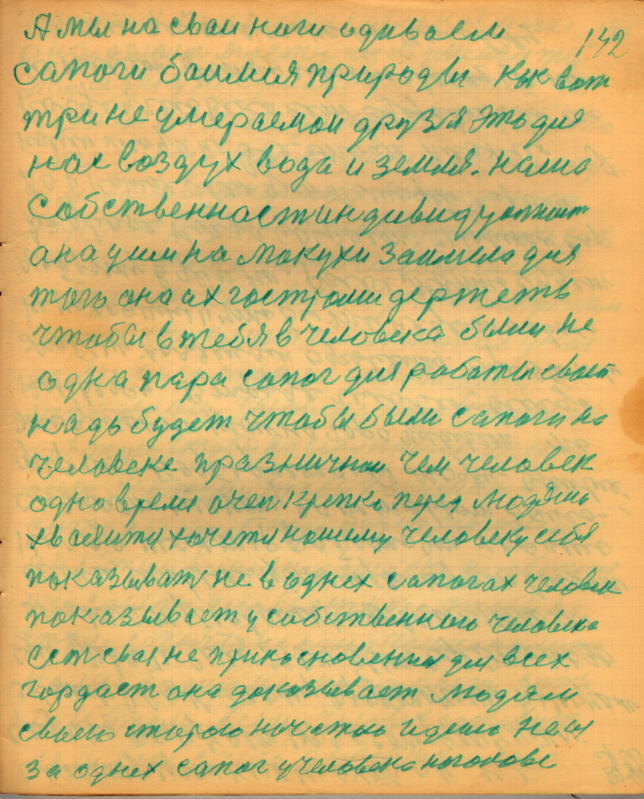 А мы на сваи ноги одиваем
142
сапоги баимся природы Как вот
три не умераемои друзя это для
нас воздух вода и земля. наша
Собственност индивидуалност
ана у им на макухи заимела для
того она ах гострами держеть
чтобы в тебя в человека были не
одна пара сапог для работы своей
надь будет чтобы были сапоги на
человеке празничнои чем человек
одно время очен крепко перед людями
хвалится хочется нашему человеку себя
показыват не в однех сапогах человек
показывает у собственного человека
ест своя не прикосновенная для всех
гордаст она доказывает людям
своею старою частою идешь неш
за однех сапог у человека